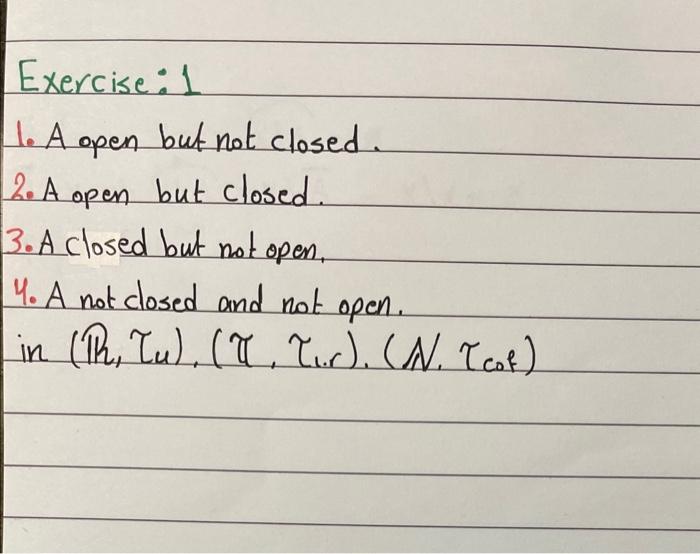 Exercise: 1
1. A open but not closed.
2. A open but closed.
3. A closed but not open.
4. A not closed and not open.
in (ℝ, τu), (π, τl.r), (N, τcof)